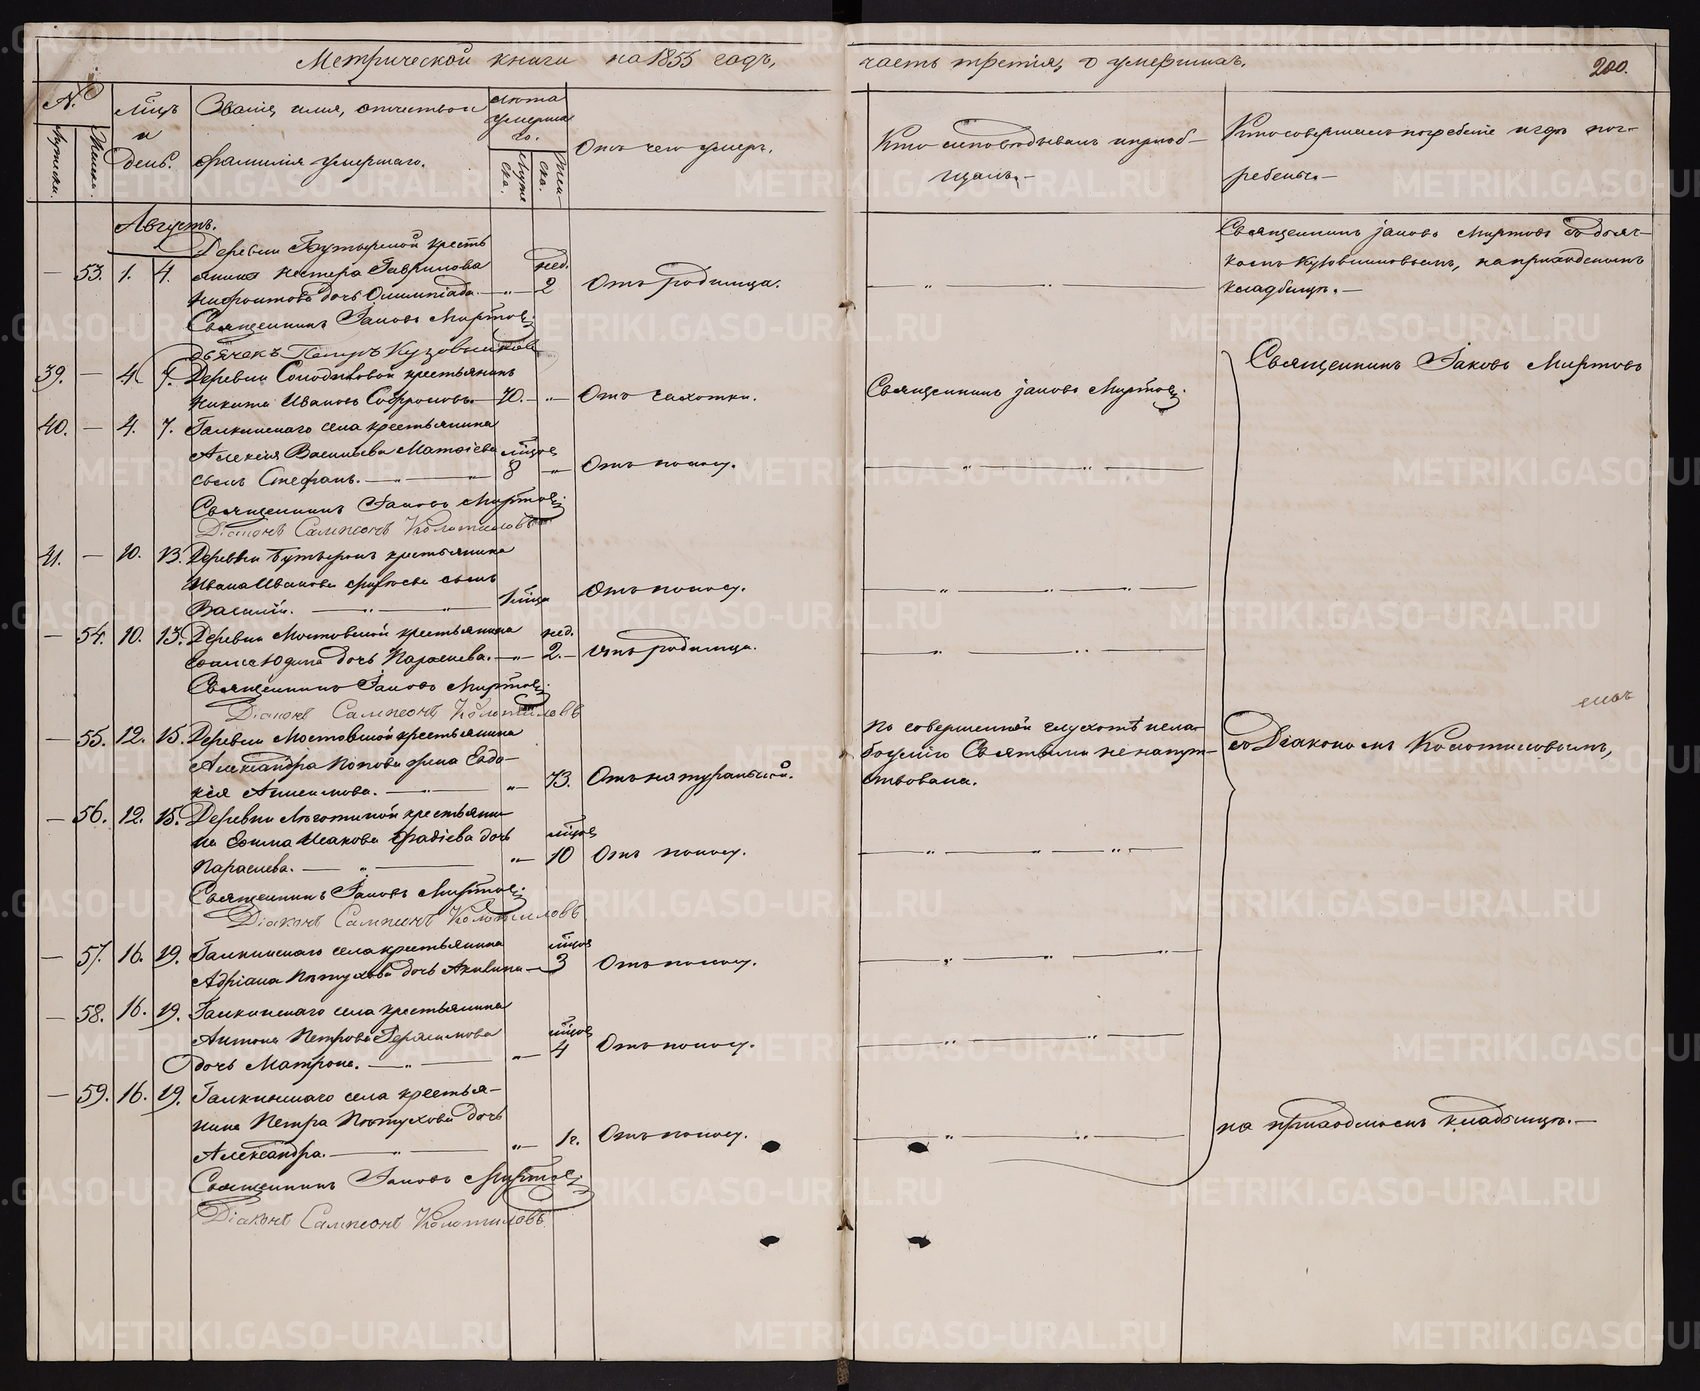 Метрической книги на 1855 годъ,
часть третія, о умершихъ.
200.
№
Мужска.
Женска.
Мѣцъ
и
день.
Званіе, имя, отчество и
фамилія умершаго.
Лѣта
умерша
го.
Муже
ска.
Жен-
ска.
Отъ чего умеръ.
Кто исповѣдывалъ и приоб-
щалъ.-
Кто совершалъ погребеніе и гдѣ пог-
ребены.-
Августъ.
Деревни кресть
— 53. 1. 4. янина Нестера Гаврилова нед.
дочь Олимпіада. — „ — 2 Отъ родимца.
Священникъ Іаковъ Миртовъ
Дьячекъ Петръ Кузовниковъ
Священникъ Іаковъ Миртовъ съ дьяч-
комъ Кузовниковымъ, на приходскомъ
кладбищѣ.-
39. — 4. 7. Деревни Солодиловой крестьянинъ
Никита Ивановъ Софроновъ. — 70. — „ — Отъ чахотки.
Священникъ Іаковъ Миртовъ.
Священникъ Іаковъ Миртовъ
40. — 4. 7. Галкинскаго села крестьянина
Алексѣя Васильева Матѳіева мѣцов
сынъ Стефанъ. — „ — 8 — „ Отъ поносу.
Священникъ Іаковъ Миртовъ.
Діаконъ Сампсонъ Колотиловъ
41. — 10. 13. Деревни крестьянина
Ивана Иванова сынъ
Василій. — „ — „ — 1 мѣца Отъ поносу.
— 54. 10. 13. Деревни Мостовской крестьянина нед.
Юдина дочь Параскева. — „ — 2. — Отъ родимца.
Священникъ Іаковъ Миртовъ.
Діаконъ Сампсонъ Колотиловъ
— 55. 12. 15. Деревни Мостовской крестьянина
Александра Попова жена Евдо-
кія Анисимова. — „ — 73. Отъ натуральной.
По совершенной глухотѣ и сла-
боумію Святыми не напут-
ствована.
съ Діакономъ Колотиловымъ,
— 56. 12. 15. Деревни крестьяни-
на Исакова дочь мѣцов
Параскева. — „ — „ — 10 Отъ поносу.
Священникъ Іаковъ Миртовъ.
Діаконъ Сампсонъ Колотиловъ
— 57. 16. 19. Галкинскаго села крестьянина мѣцов
Адріана Пѣтухова дочь Акилина — 3 Отъ поносу.
— 58. 16. 19. Галкинскаго села крестьянина
Антона Петрова Герасимова мѣцов
дочь Матрона. — „ — „ — 4 Отъ поносу.
— 59. 16. 19. Галкинскаго села крестья-
нина Петра Пѣтухова дочь
Александра. — „ — „ — 1г. Отъ поносу.
Священникъ Іаковъ Миртовъ
Діаконъ Сампсонъ Колотиловъ.
на приходскомъ кладбищѣ.-
METRIKI.GASO-URAL.RU